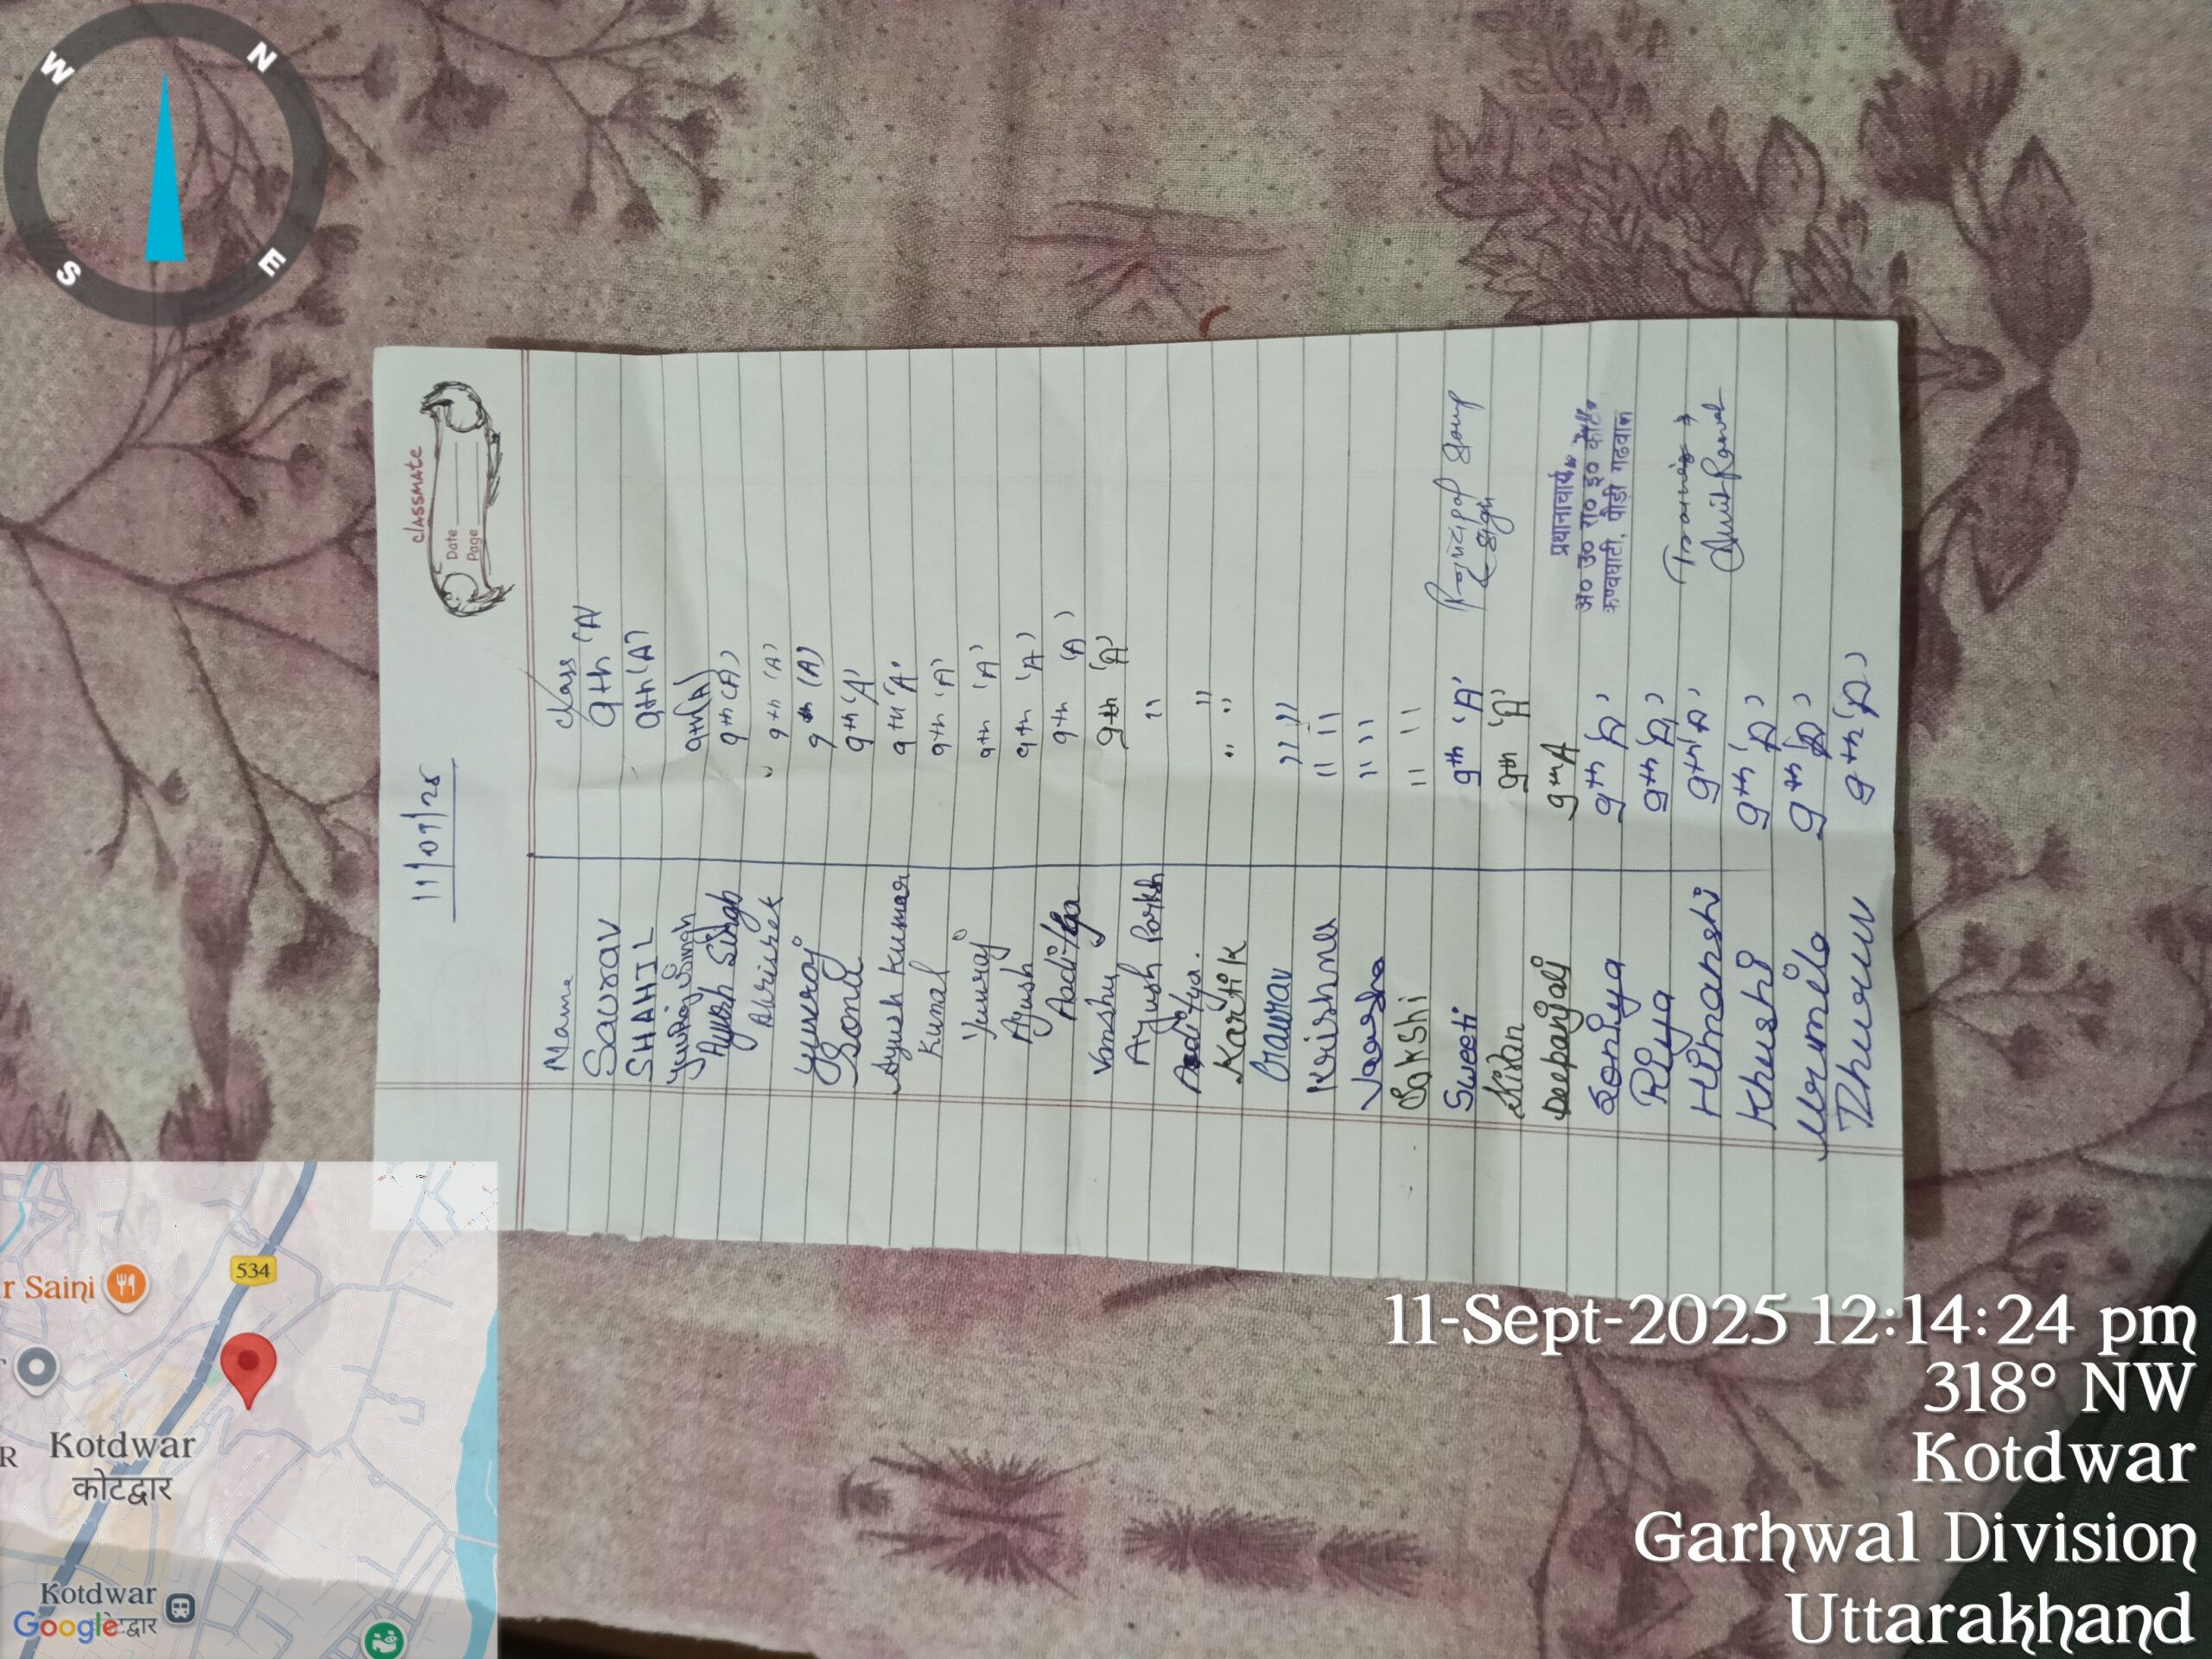 W
N
S
E
classmate
Date
Page
11/09/25
Name class
Saurav 9th 'A'
SHAHIL 9th (A)
Yuvraj Singh 9th (A)
Ayush Singh 9th (A)
Abhishek 9th (A)
Yuvraj 9th (A)
Sonu 9th 'A'
Ayush Kumar 9th 'A'
Kunal 9th 'A'
Yuvraj 9th 'A'
Ayush 9th 'A'
Aaditya 9th 'A'
Vanshu 9th 'A'
Ayush "
Aaditya. "
Kartik " "
Gaurav " "
Krishna " "
" "
Sakshi " "
Sweeti 9th 'A'
Kiran 9th 'A'
Deepanjali 9th A
Soniya 9th 'A'
Riya 9th 'A'
Himanshi 9th 'A'
Khushi 9th 'A'
Urmila 9th 'A'
9th 'A'
Principal
Sign
प्रधानाचार्य
अ० उ० रा० इ० का०
कण्वघाटी, पौडी गढवाल
Rawat
r Saini
534
R
Kotdwar
कोटद्वार
Kotdwar
Google
11-Sept-2025 12:14:24 pm
318° NW
Kotdwar
Garhwal Division
Uttarakhand